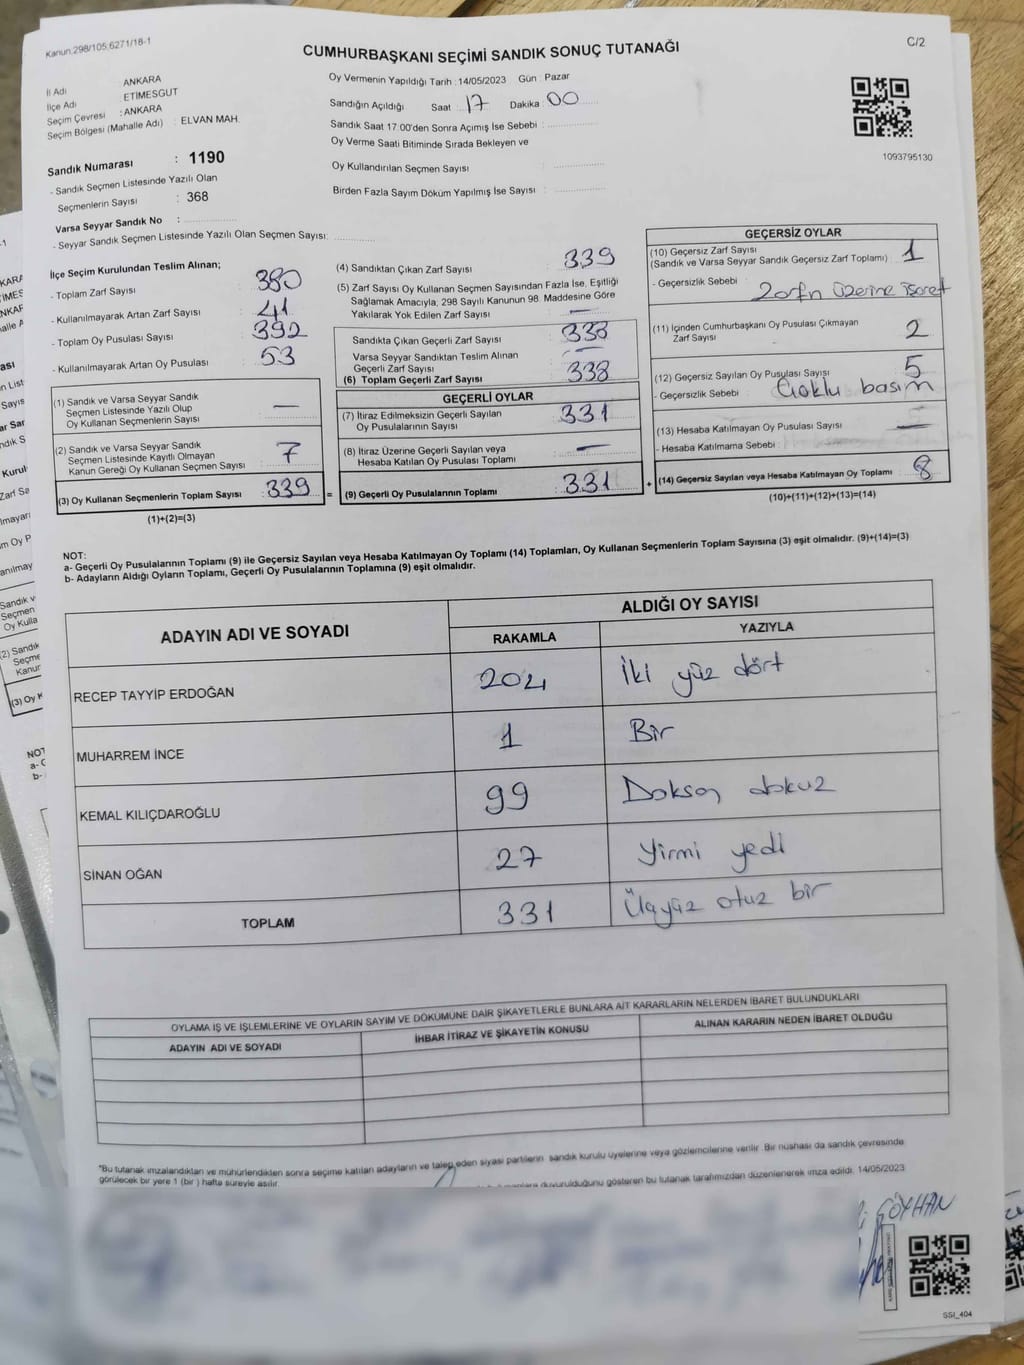 Kanun:298/105;6271/18-1
C/2
CUMHURBAŞKANI SEÇİMİ SANDIK SONUÇ TUTANAĞI
İl Adı ANKARA
İlçe Adı ETİMESGUT
Seçim Çevresi : ANKARA
Seçim Bölgesi (Mahalle Adı) : ELVAN MAH.
Sandık Numarası : 1190
- Sandık Seçmen Listesinde Yazılı Olan
Seçmenlerin Sayısı : 368
Varsa Seyyar Sandık No :
- Seyyar Sandık Seçmen Listesinde Yazılı Olan Seçmen Sayısı:
Oy Vermenin Yapıldığı Tarih :14/05/2023 Gün : Pazar
Sandığın Açıldığı Saat : 17 Dakika : 00
Sandık Saat 17.00'den Sonra Açımış İse Sebebi :
Oy Verme Saati Bitiminde Sırada Bekleyen ve
Oy Kullandırılan Seçmen Sayısı :
Birden Fazla Sayım Döküm Yapılmış İse Sayısı :
1093795130
İlçe Seçim Kurulundan Teslim Alınan;
- Toplam Zarf Sayısı : 380
- Kullanılmayarak Artan Zarf Sayısı : 41
- Toplam Oy Pusulası Sayısı : 392
- Kullanılmayarak Artan Oy Pusulası : 53
(1) Sandık ve Varsa Seyyar Sandık
Seçmen Listesinde Yazılı Olup
Oy Kullanan Seçmenlerin Sayısı : —
(2) Sandık ve Varsa Seyyar Sandık
Seçmen Listesinde Kayıtlı Olmayan
Kanun Gereği Oy Kullanan Seçmen Sayısı : 7
(3) Oy Kullanan Seçmenlerin Toplam Sayısı : 339 =
(1)+(2)=(3)
(4) Sandıktan Çıkan Zarf Sayısı : 339
(5) Zarf Sayısı Oy Kullanan Seçmen Sayısından Fazla İse, Eşitliği
Sağlamak Amacıyla, 298 Sayılı Kanunun 98. Maddesine Göre
Yakılarak Yok Edilen Zarf Sayısı : —
Sandıkta Çıkan Geçerli Zarf Sayısı : 338
Varsa Seyyar Sandıktan Teslim Alınan
Geçerli Zarf Sayısı : —
(6) Toplam Geçerli Zarf Sayısı : 338
GEÇERLİ OYLAR
(7) İtiraz Edilmeksizin Geçerli Sayılan
Oy Pusulalarının Sayısı : 331
(8) İtiraz Üzerine Geçerli Sayılan veya
Hesaba Katılan Oy Pusulası Toplamı : —
(9) Geçerli Oy Pusulalarının Toplamı : 331 +
GEÇERSİZ OYLAR
(10) Geçersiz Zarf Sayısı
(Sandık ve Varsa Seyyar Sandık Geçersiz Zarf Toplamı) : 1
- Geçersizlik Sebebi : Zarfın üzerine işaret
(11) İçinden Cumhurbaşkanı Oy Pusulası Çıkmayan
Zarf Sayısı : 2
(12) Geçersiz Sayılan Oy Pusulası Sayısı : 5
- Geçersizlik Sebebi : Çoklu basım
(13) Hesaba Katılmayan Oy Pusulası Sayısı : —
- Hesaba Katılmama Sebebi :
(14) Geçersiz Sayılan veya Hesaba Katılmayan Oy Toplamı : 8
(10)+(11)+(12)+(13)=(14)
NOT:
a- Geçerli Oy Pusulalarının Toplamı (9) ile Geçersiz Sayılan veya Hesaba Katılmayan Oy Toplamı (14) Toplamları, Oy Kullanan Seçmenlerin Toplam Sayısına (3) eşit olmalıdır. (9)+(14)=(3)
b- Adayların Aldığı Oyların Toplamı, Geçerli Oy Pusulalarının Toplamına (9) eşit olmalıdır.
ADAYIN ADI VE SOYADI
ALDIĞI OY SAYISI
RAKAMLA YAZIYLA
RECEP TAYYİP ERDOĞAN 204 İki yüz dört
MUHARREM İNCE 1 Bir
KEMAL KILIÇDAROĞLU 99 Doksan dokuz
SİNAN OĞAN 27 Yirmi yedi
TOPLAM 331 Üçyüz otuz bir
OYLAMA İŞ VE İŞLEMLERİNE VE OYLARIN SAYIM VE DÖKÜMÜNE DAİR ŞİKAYETLERLE BUNLARA AİT KARARLARIN NELERDEN İBARET BULUNDUKLARI
ADAYIN ADI VE SOYADI İHBAR İTİRAZ VE ŞİKAYETİN KONUSU ALINAN KARARIN NEDEN İBARET OLDUĞU
*Bu tutanak imzalandıktan ve mühürlendikten sonra seçime katılan adayların ve talep eden siyasi partilerin sandık kurulu üyelerine veya gözlemcilerine verilir. Bir nüshası da sandık çevresinde
görülecek bir yere 1 (bir) hafta süreyle asılır.
duyurulduğunu gösteren bu tutanak tarafımızdan düzenlenerek imza edildi. 14/05/2023
GÖYHAN
SSI_404